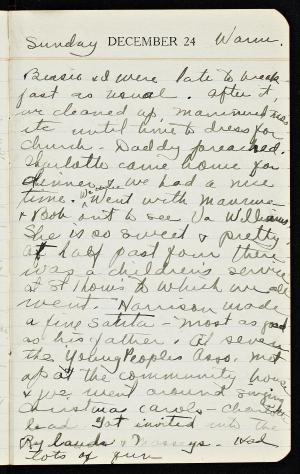 Sunday DECEMBER 24 Warm.
& I were late to break-
fast as usual. After it,
we cleaned up,
etc until time to dress for
Church. Daddy preached.
Charlotte came home for
dinner & we had a nice
time. We also Went with
& Bob out to see Va Williams.
She is so sweet & pretty.
At half past four there
was a children's service
at St Thom's to which we all
went. Harrison made
a fine Santa - most as good
as his father. At seven
the Young Peoples Asso. met
up at the community house
& we went around singing
Christmas carols - Charlotte
lead. Got invited into the
Rylands & Masseys. Had
lots of fun